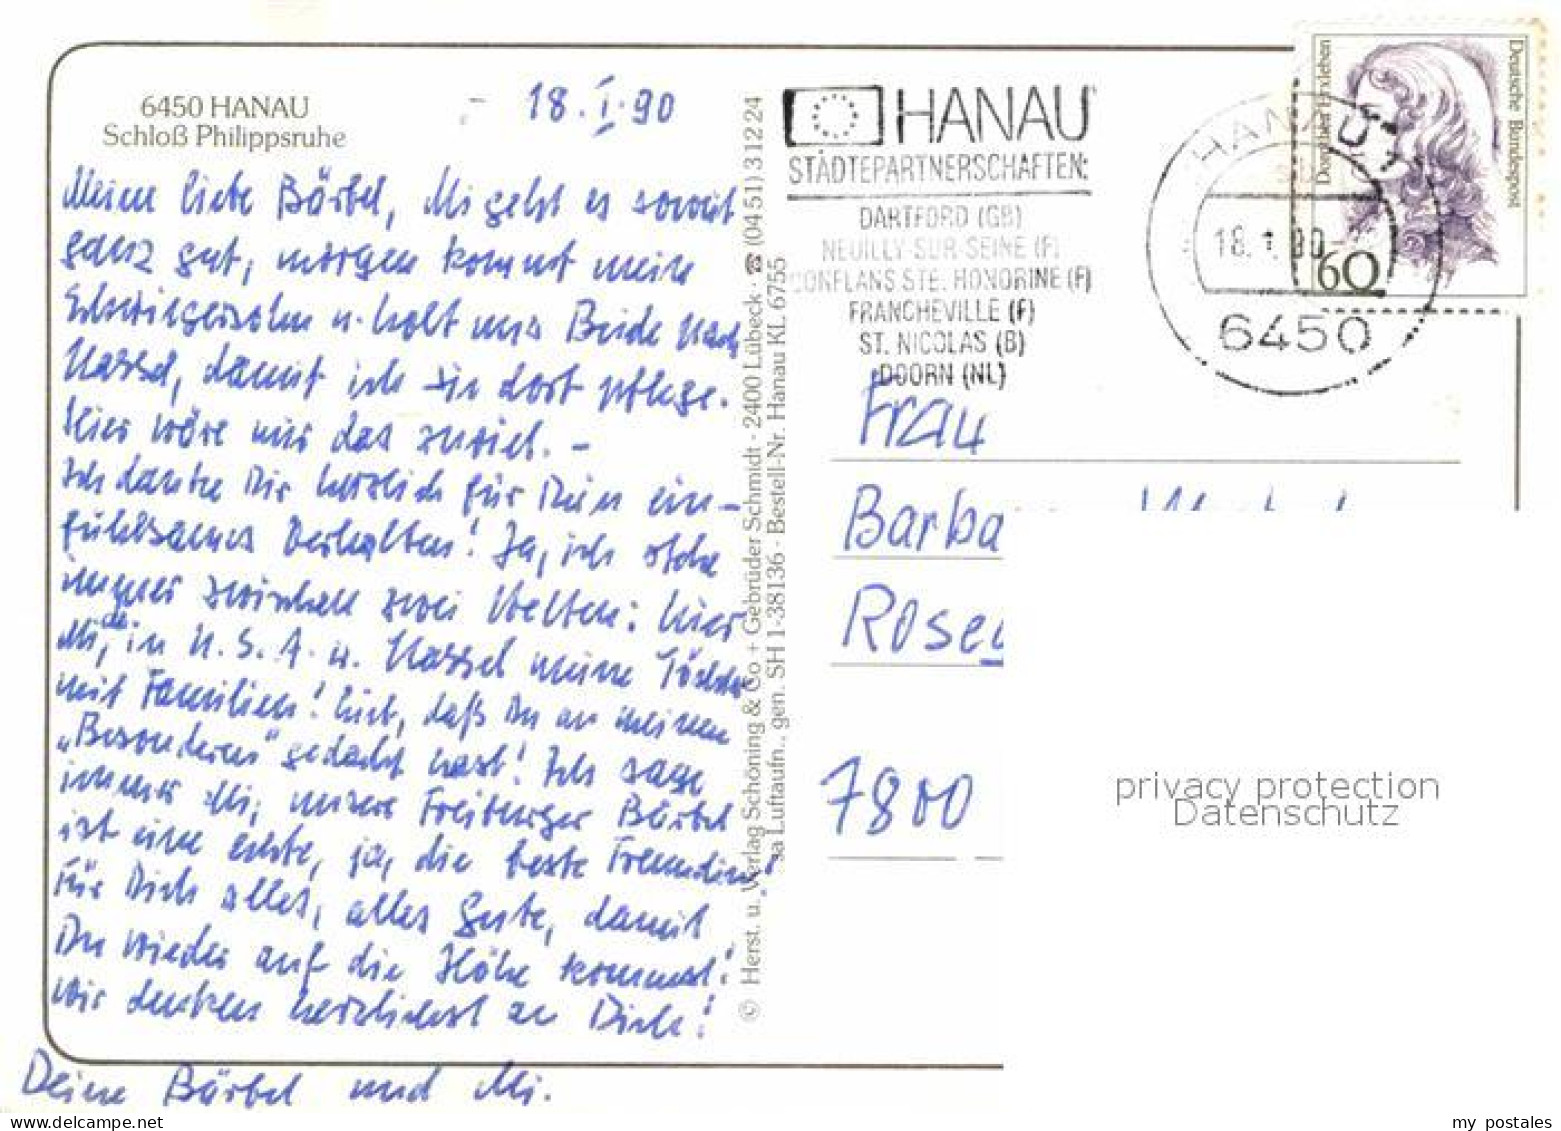 6450 HANAU
Schloß Philippsruhe
18. I. 90
Meine liebe Bärbel, Mi geht es soweit
ganz gut, morgen kommt mein
Schwiegersohn u. holt uns Beide nach
Kassel, damit ich sie dort pflege.
Hier wäre mir das zuviel. –
Ich danke Dir herzlich für Dein ein-
fühlsames Verhalten! Ja, ich stehe
immer zwischen zwei Welten: hier
Mi, in U.S.A. u. Kassel meine Töchter
mit Familien! Lieb, daß Du an meinen
„Besonderen" gedacht hast! Ich sage
immer Mi, unsere Freiburger Bärbel
ist eine echte, ja, die beste Freundin!
Für Dich alles, alles Gute, damit
Du wieder auf die Höhe kommst!
Wir denken herzlichst an Dich!
Deine Bärbel und Mi.
© Herst. u. Verlag Schöning & Co + Gebrüder Schmidt · 2400 Lübeck · ☎ (0451) 31224
sa Luftaufn., gen. SH 1-38136 · Bestell-Nr. Hanau KL 6755
HANAU
STÄDTEPARTNERSCHAFTEN:
DARTFORD (GB)
NEUILLY-SUR-SEINE (F)
CONFLANS STE. HONORINE (F)
FRANCHEVILLE (F)
ST. NICOLAS (B)
DOORN (NL)
HANAU
18. 1. 90
6450
Dorothea Erxleben
Deutsche Bundespost
60
Frau
Barba
Rose
7800
privacy protection
Datenschutz
my postales